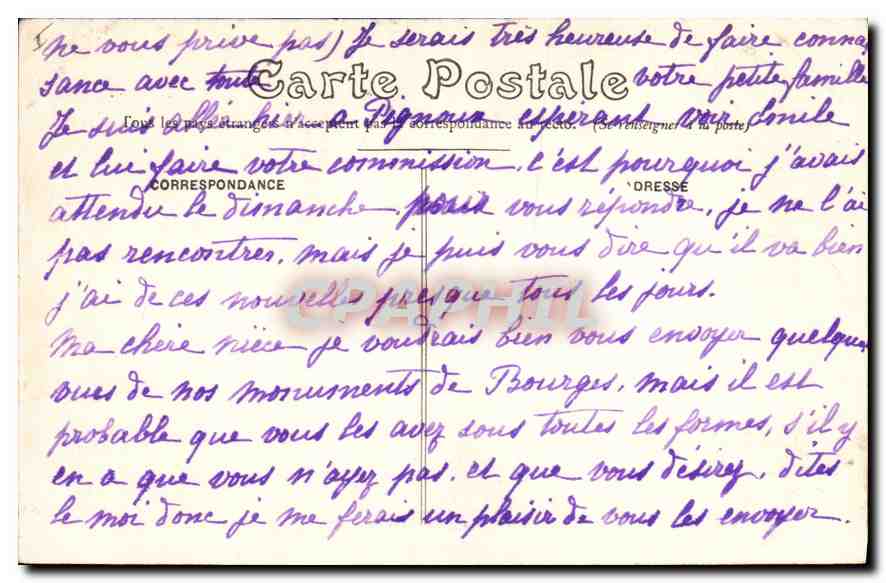 ne vous prive pas) Je serais très heureuse de faire connai
sance avec toute votre petite famille
Carte Postale
Je suis allé hier a Pignoux espérant voir Emile
Tous les pays étrangers n'acceptent pas la correspondance au recto. (Se renseigner à la poste)
et lui faire votre commission, c'est pourquoi j'avais
CORRESPONDANCE
DRESSE
attendu le dimanche pour vous répondre, je ne l'ai
pas rencontrer, mais je puis vous dire qu'il va bien
j'ai de ces nouvelles presque tous les jours.
CPAPHIL
Ma chère nièce je voudrais bien vous envoyer quelques
vues de nos monuments de Bourges, mais il est
probable que vous les avez sous toutes les formes, s'il y
en a que vous n'ayez pas, et que vous désirez, dites
le moi donc je me ferais un plaisir de vous les envoyer.